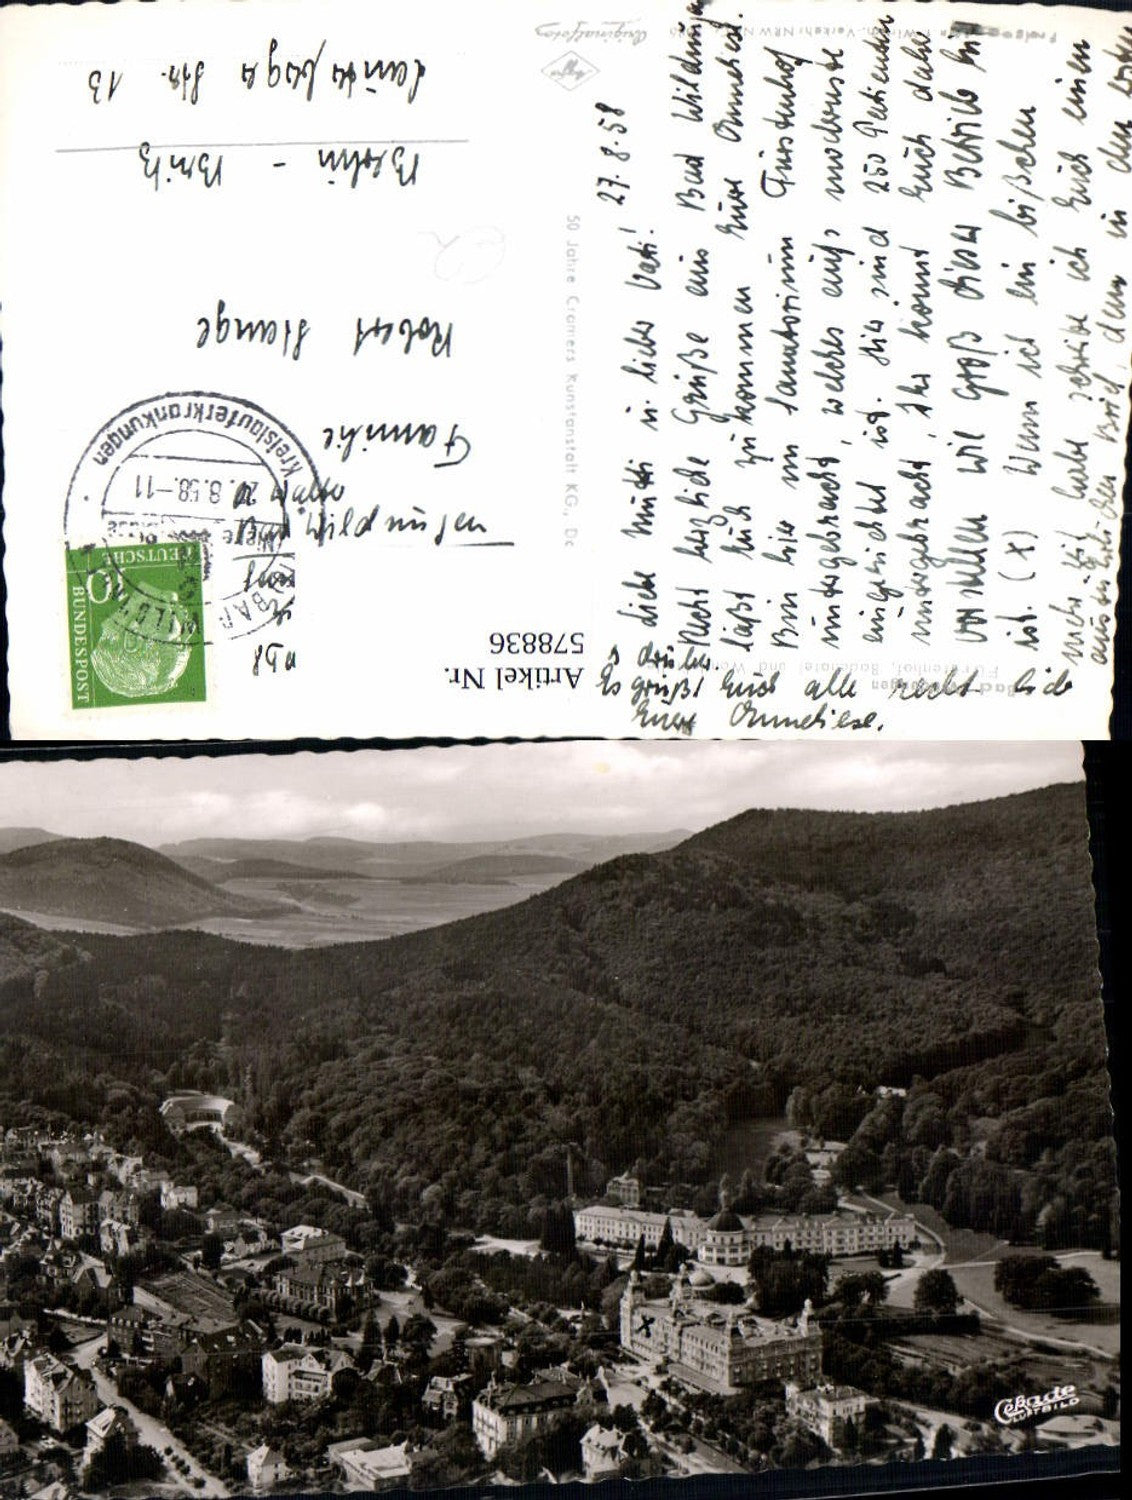 27.8.58
Liebe Mutti u. lieber Vati!
Recht herzliche Grüße aus Bad Wildungen
läßt Euch zukommen Eure Anneliese.
Bin hier im Sanatorium Fürstenhof
untergebracht, welches aufs modernste
eingerichtet ist. Hier sind 250 Patienten
untergebracht, Ihr könnt Euch daher
vorstellen wie groß dieser Betrieb hier
ist. (X) Wenn ich ein bißchen
mehr Zeit habe schreibe ich Euch einen
ausführlichen Brief, denn in den
drüber.
Es grüßt Euch alle recht lieb
Eure Anneliese.
Familie
Robert Stange
Berlin - Britz
Str. 13
Kreislauferkrankungen
27.8.58.-11
BAD WILDUNGEN
Niere
Blase
DEUTSCHE
BUNDESPOST
10
Artikel Nr.
578836
50 Jahre Cramers Kunstanstalt KG., Do
Originalfoto
Agfa
Bad Wildungen
Fürstenhof, Badehotel und
Cekade
LUFTBILD